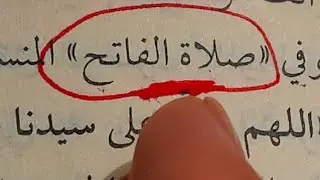 وفي «صلاة الفاتح» المنس
«اللهم على سيدنا